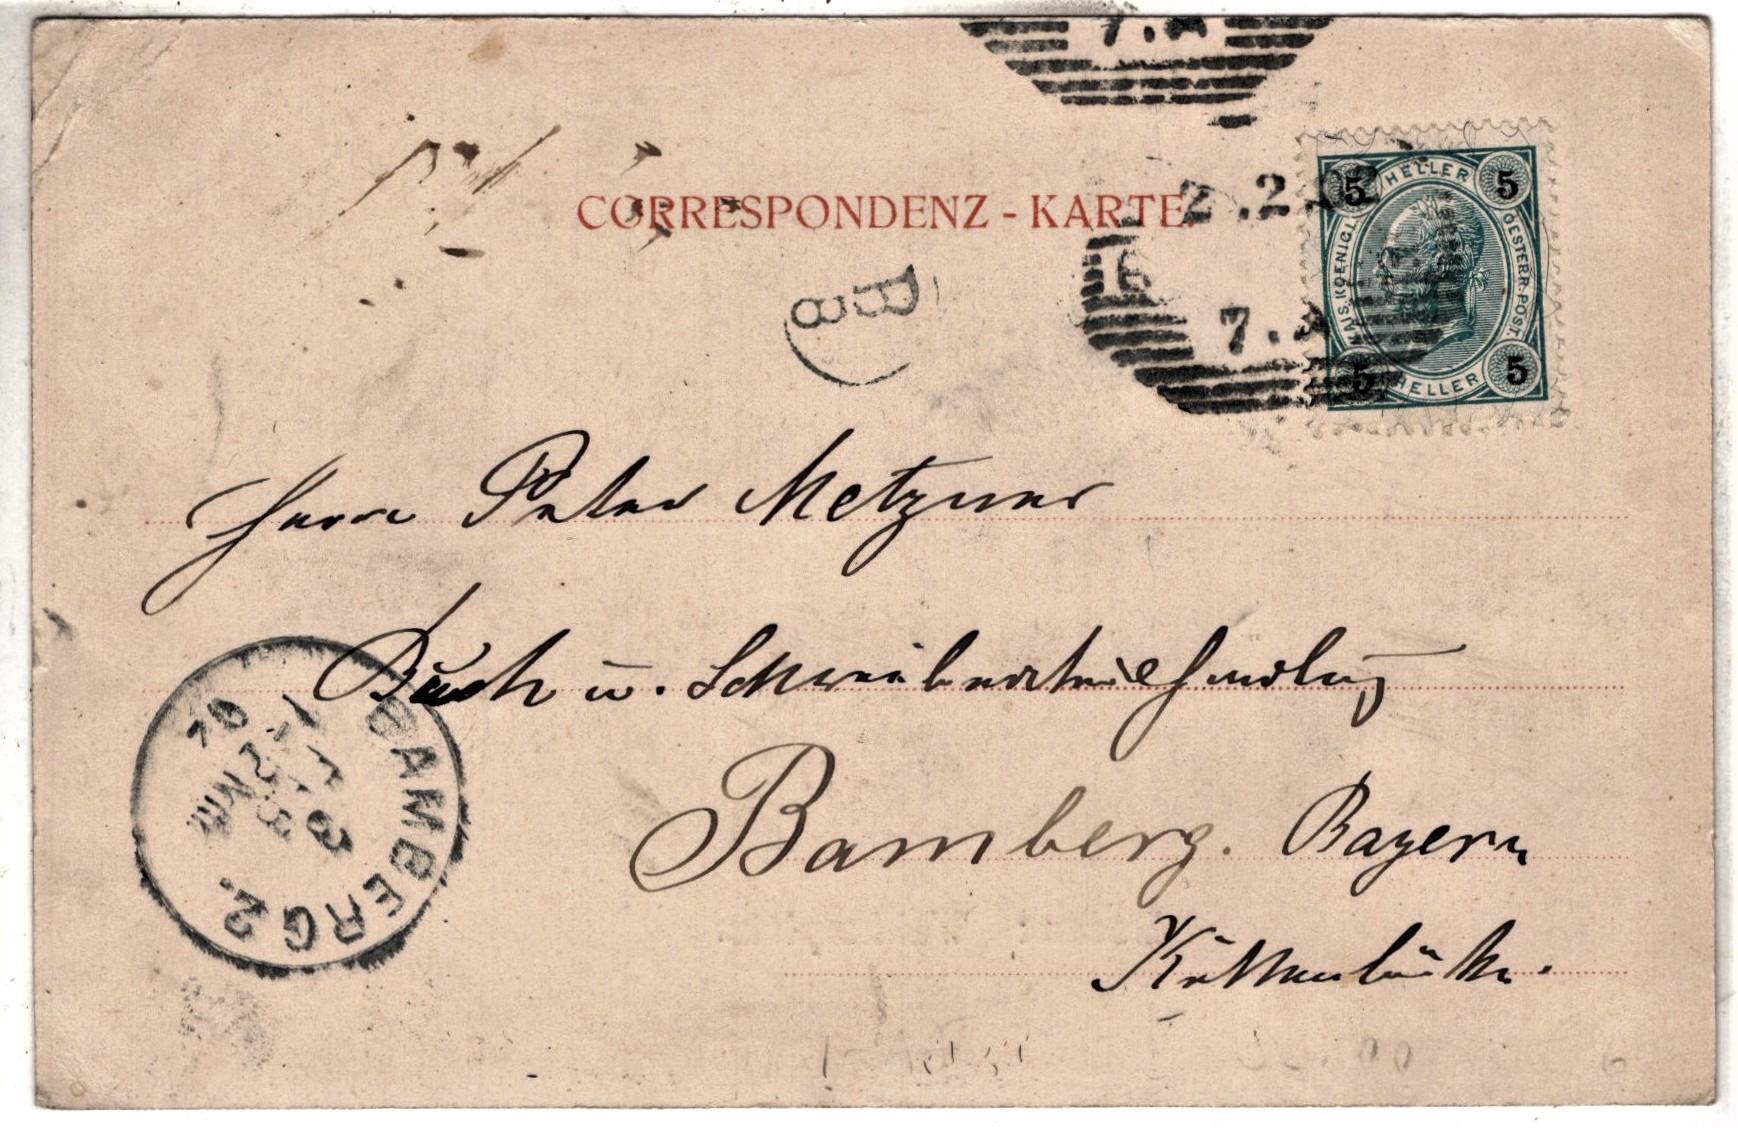 7.
CORRESPONDENZ - KARTE
2.2.02
5 HELLER 5
KAIS. KOENIGL. OESTERR. POST.
5 HELLER 5
16
7.
B
B
Herrn Peter Metzner
Buch u. Schreibmaterialhandlung
Bamberg. Bayern
BAMBERG 2.
3 FEB
02